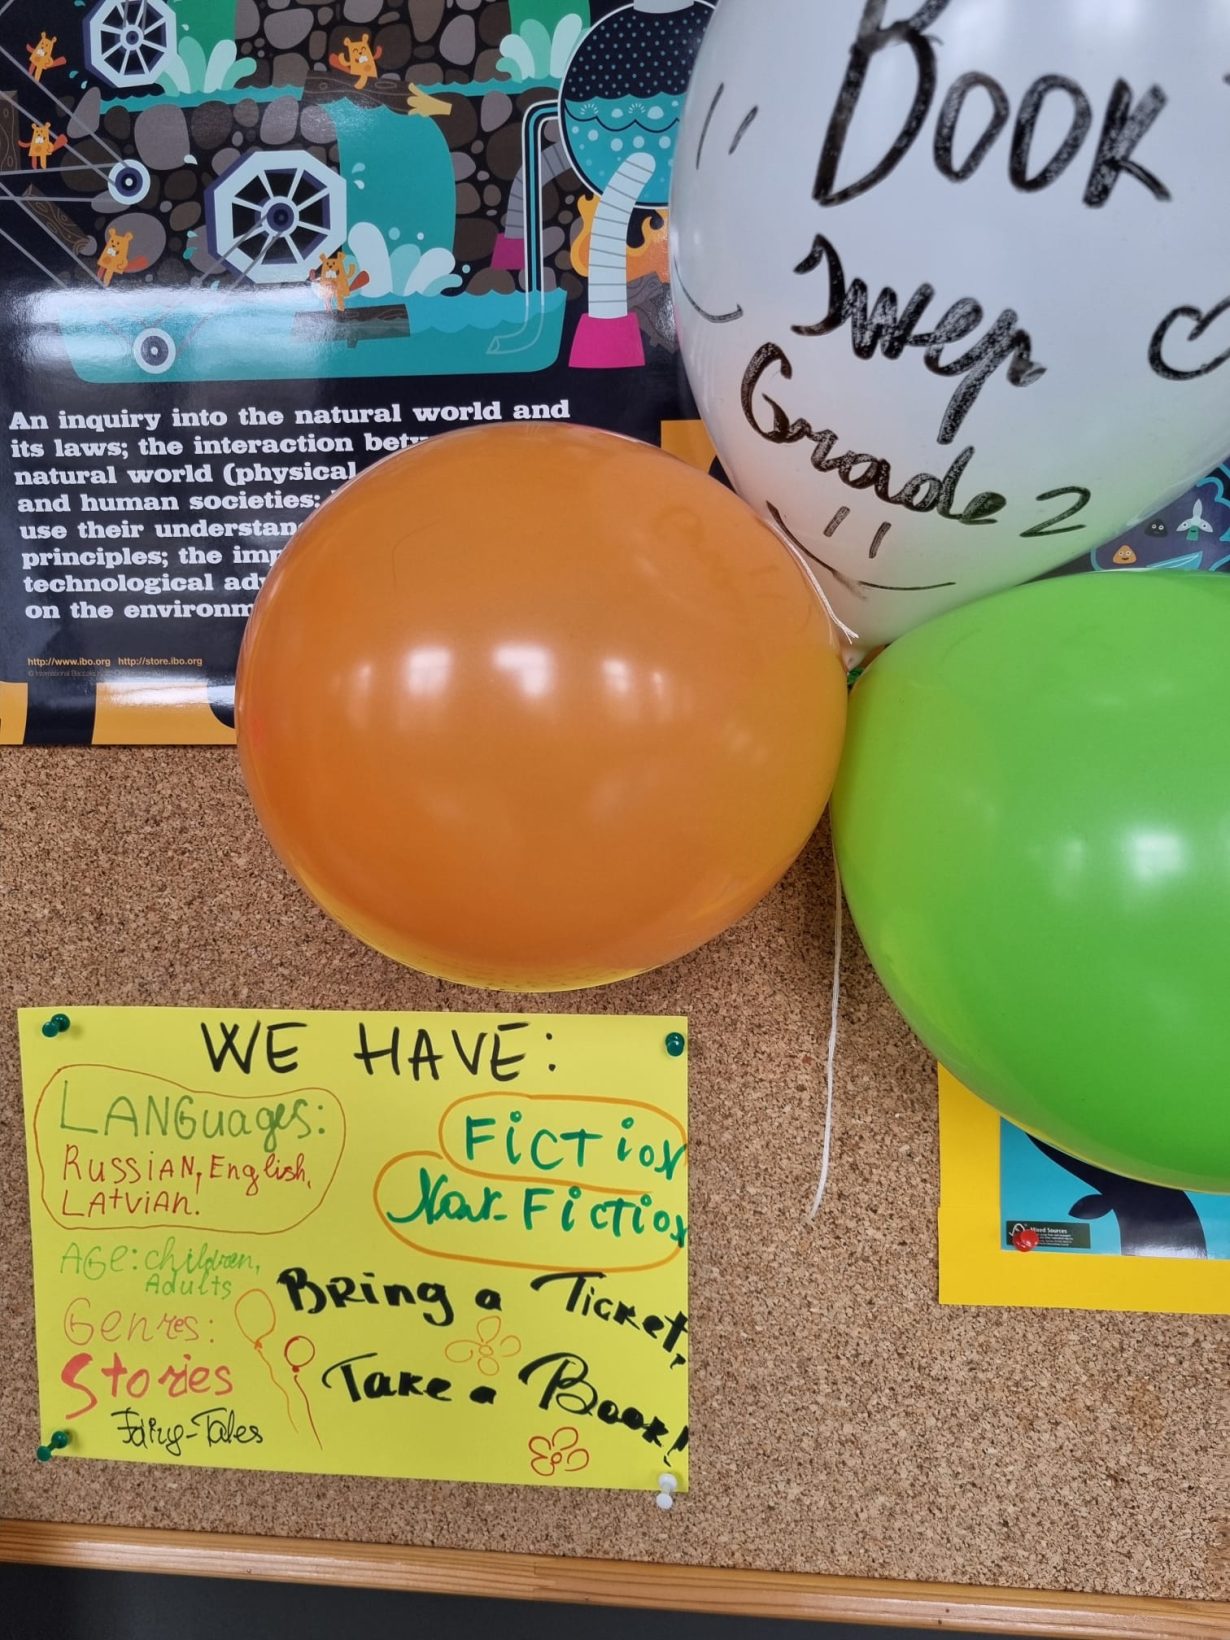 Book
Swep
Grade 2
An inquiry into the natural world and
its laws; the interaction bet
natural world (physical
and human societies;
use their understan
principles; the imp
technological ad
on the environm
http://www.ibo.org http://store.ibo.org
Mixed Sources
WE HAVE:
LANGuages:
RUSSiAN, English,
LAtviAn!
FiCTioN
Non-FictioN
AGe: children,
Adults
Genres:
Stories
Fairy-Tales
Bring a Ticket,
Take a Book!